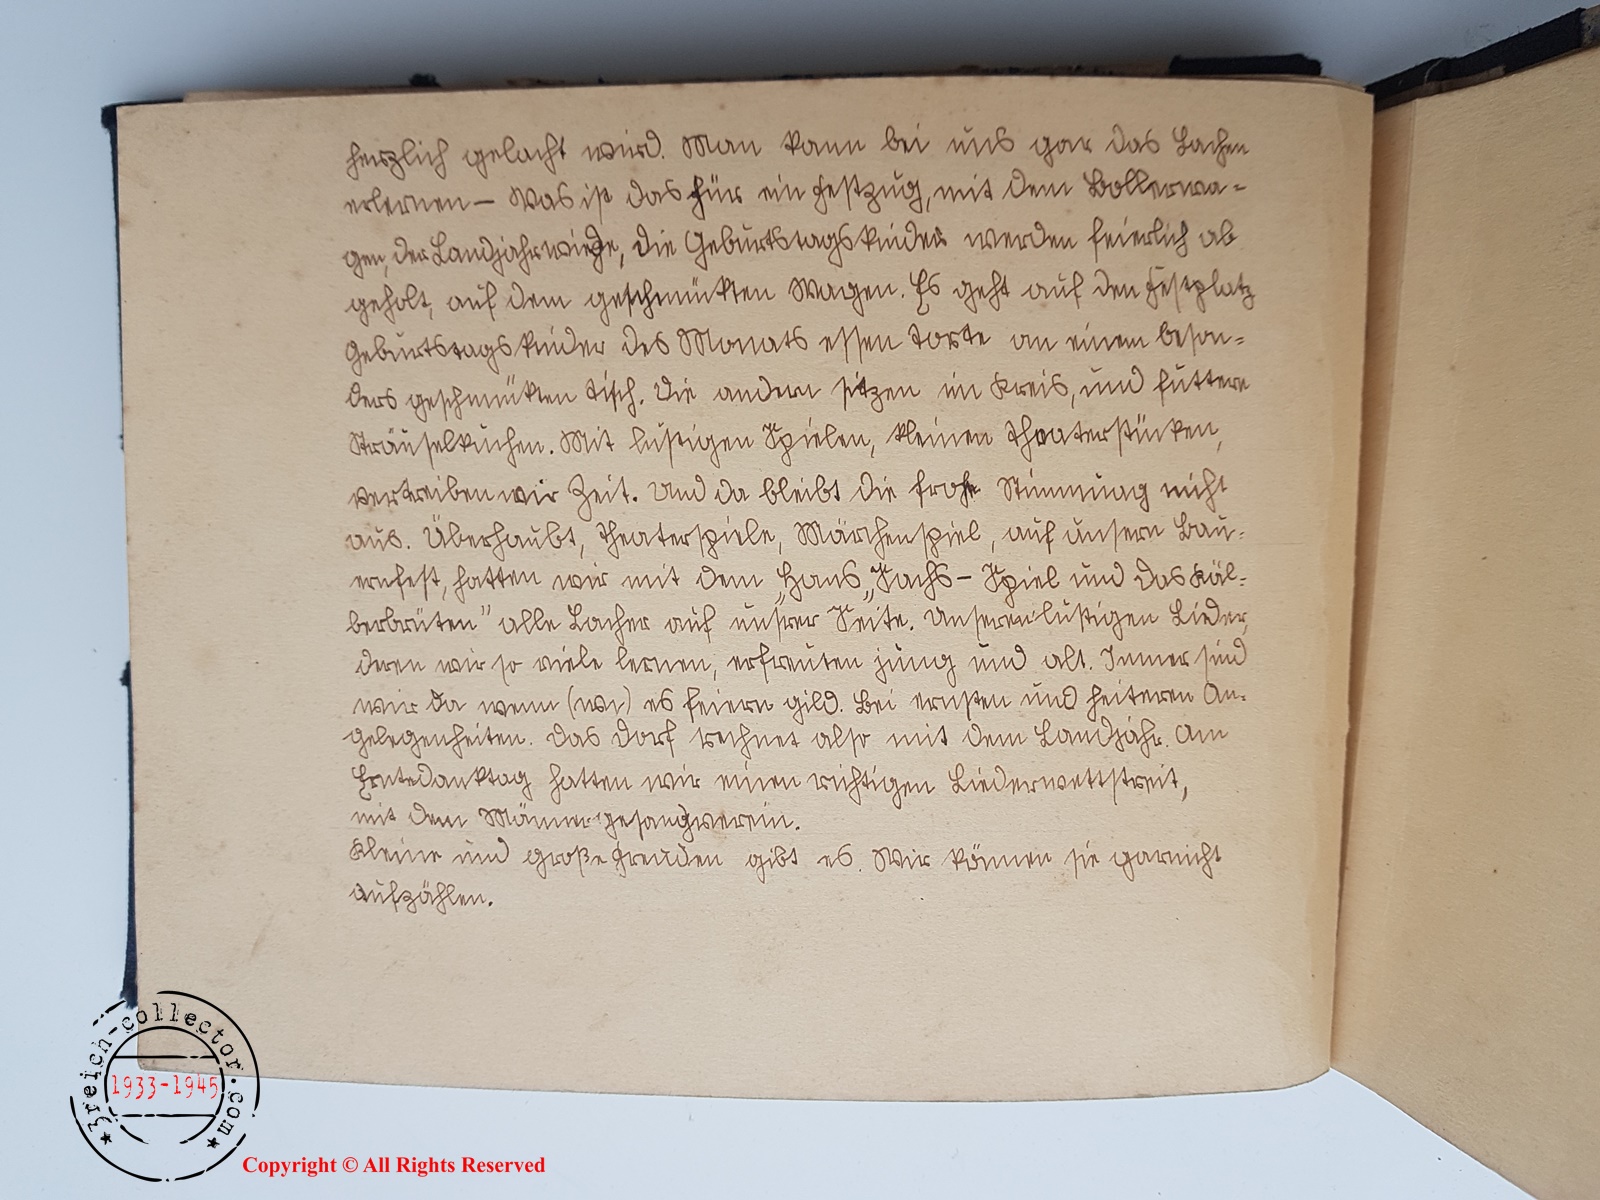 herzlich gelacht wird. Man kann bei uns gar das Lachen
erlernen – Was ist das für ein Festzug, mit dem Bollerwa=
gen, der Landjahrwiege, die Geburtstagskinder werden feierlich ab
geholt, auf dem geschmükten Wagen. Es geht auf den Festplatz
Geburtstagskinder des Monats essen Torte an einem beson=
ders geschmükten Tisch. Die andern sitzen im Kreis, und futtern
Sträuselkuchen. Mit lustigen Spielen, kleinen Theaterstücken,
vertreiben wir Zeit. Und da bleibt die frohe Stimmung nicht
aus. Überhaubt, Theaterspiele, Märchenspiel, auf unsern Bau=
ernfest, hatten wir mit dem „Hans „Sachs – Spiel und das Käl=
berbrüten" alle Lacher auf unsrer Seite. Unseren lustigen Lieder,
deren wir so viele lernen, erfreuten jung und alt. Immer sind
wir da wenn (wo) es feiern gild. Bei ernsten und heiteren An=
gelegenheiten. Das Dorf rechnet also mit dem Landjahr. Am
Erntedanktag hatten wir einen richtigen Liederwettstreit,
mit dem Männergesangverein.
Kleine und große Freuden gibt es. Wir können sie garnicht
aufzählen.
3reich-collector.com
1933-1945
Copyright © All Rights Reserved